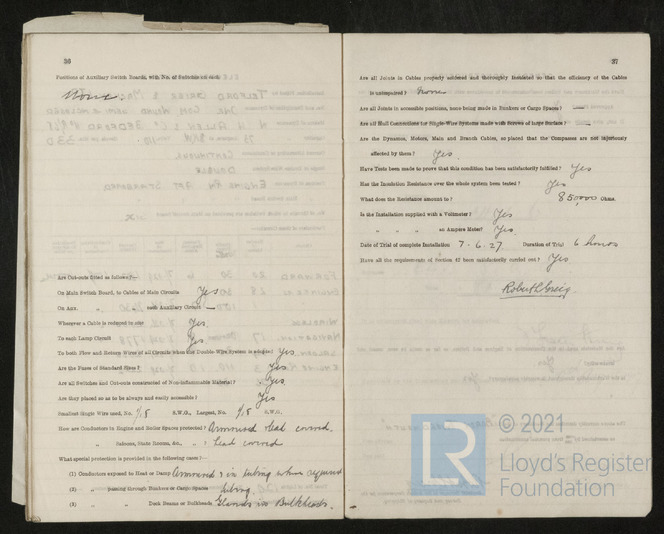 36
Positions of Auxiliary Switch Boards, with No. of Switches on each
None
Are Cut-outs fitted as follows?—
On Main Switch Board, to Cables of Main Circuits Yes
On Aux. " " each Auxiliary Circuit —
Wherever a Cable is reduced in size Yes.
To each Lamp Circuit Yes.
To both Flow and Return Wires of all Circuits when the Double-Wire System is adopted Yes.
Are the Fuses of Standard Sizes? Yes
Are all Switches and Cut-outs constructed of Non-inflammable Material? Yes
Are they placed so as to be always and easily accessible? Yes
Smallest Single Wire used, No. S.W.G., Largest, No. S.W.G.
How are Conductors in Engine and Boiler Spaces protected? Armoured lead covered.
" " Saloons, State Rooms, &c., " ? Lead covered
What special protection is provided in the following cases?—
(1) Conductors exposed to Heat or Damp Armoured & in tubing where exposed
(2) " passing through Bunkers or Cargo Spaces tubing.
(3) " " Deck Beams or Bulkheads Glands in Bulkheads.
37
Are all Joints in Cables properly soldered and thoroughly insulated so that the efficiency of the Cables
is unimpaired? None
Are all Joints in accessible positions, none being made in Bunkers or Cargo Spaces? —
Are all Hull Connections for Single-Wire Systems made with Screws of large Surface? —
Are the Dynamos, Motors, Main and Branch Cables, so placed that the Compasses are not injuriously
affected by them? Yes.
Have Tests been made to prove that this condition has been satisfactorily fulfilled? Yes
Has the Insulation Resistance over the whole system been tested? Yes
What does the Resistance amount to? 850,000 Ohms.
Is the Installation supplied with a Voltmeter? Yes
" " " an Ampere Meter? Yes.
Date of Trial of complete Installation 7.6.27. Duration of Trial 6 hours
Have all the requirements of Section 42 been satisfactorily carried out? Yes
Robert L Greig.
LR
© 2021
Lloyd's Register
Foundation